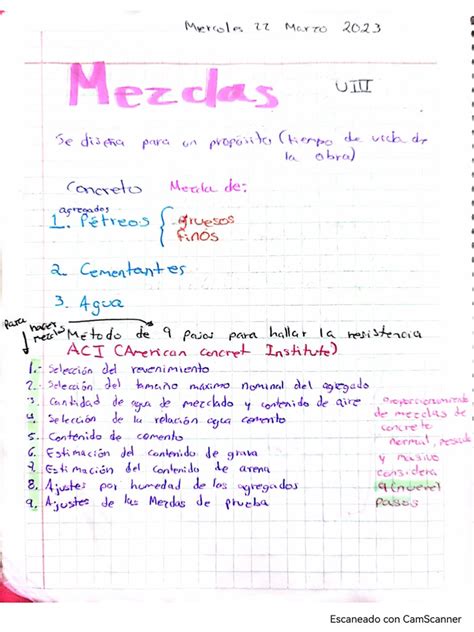 Miercoles 22 Marzo 2023
Mezclas UIII
Se diseña para un propósito (tiempo de vida de la obra)
Concreto Mezcla de:
agregados
1. Pétreos { gruesos
finos
2. Cementantes
3. Agua
para hacer mezclas
Método de 9 pasos para hallar la resistencia
ACI (American Concret Institute)
1.- Selección del revenimiento
2.- Selección del tamaño maximo nominal del agregado
3. Cantidad de agua de mezclado y contenido de aire
4. Selección de la relación agua cemento
5. Contenido de cemento
6. Estimación del contenido de grava
7. Estimación del contenido de arena
8. Ajustes por humedad de los agregados
9. Ajustes de las Mezclas de prueba
Proporcionamiento
de mezclas de
concreto
normal, pesado
y masivo
considera
9 (nueve)
pasos
Escaneado con CamScanner